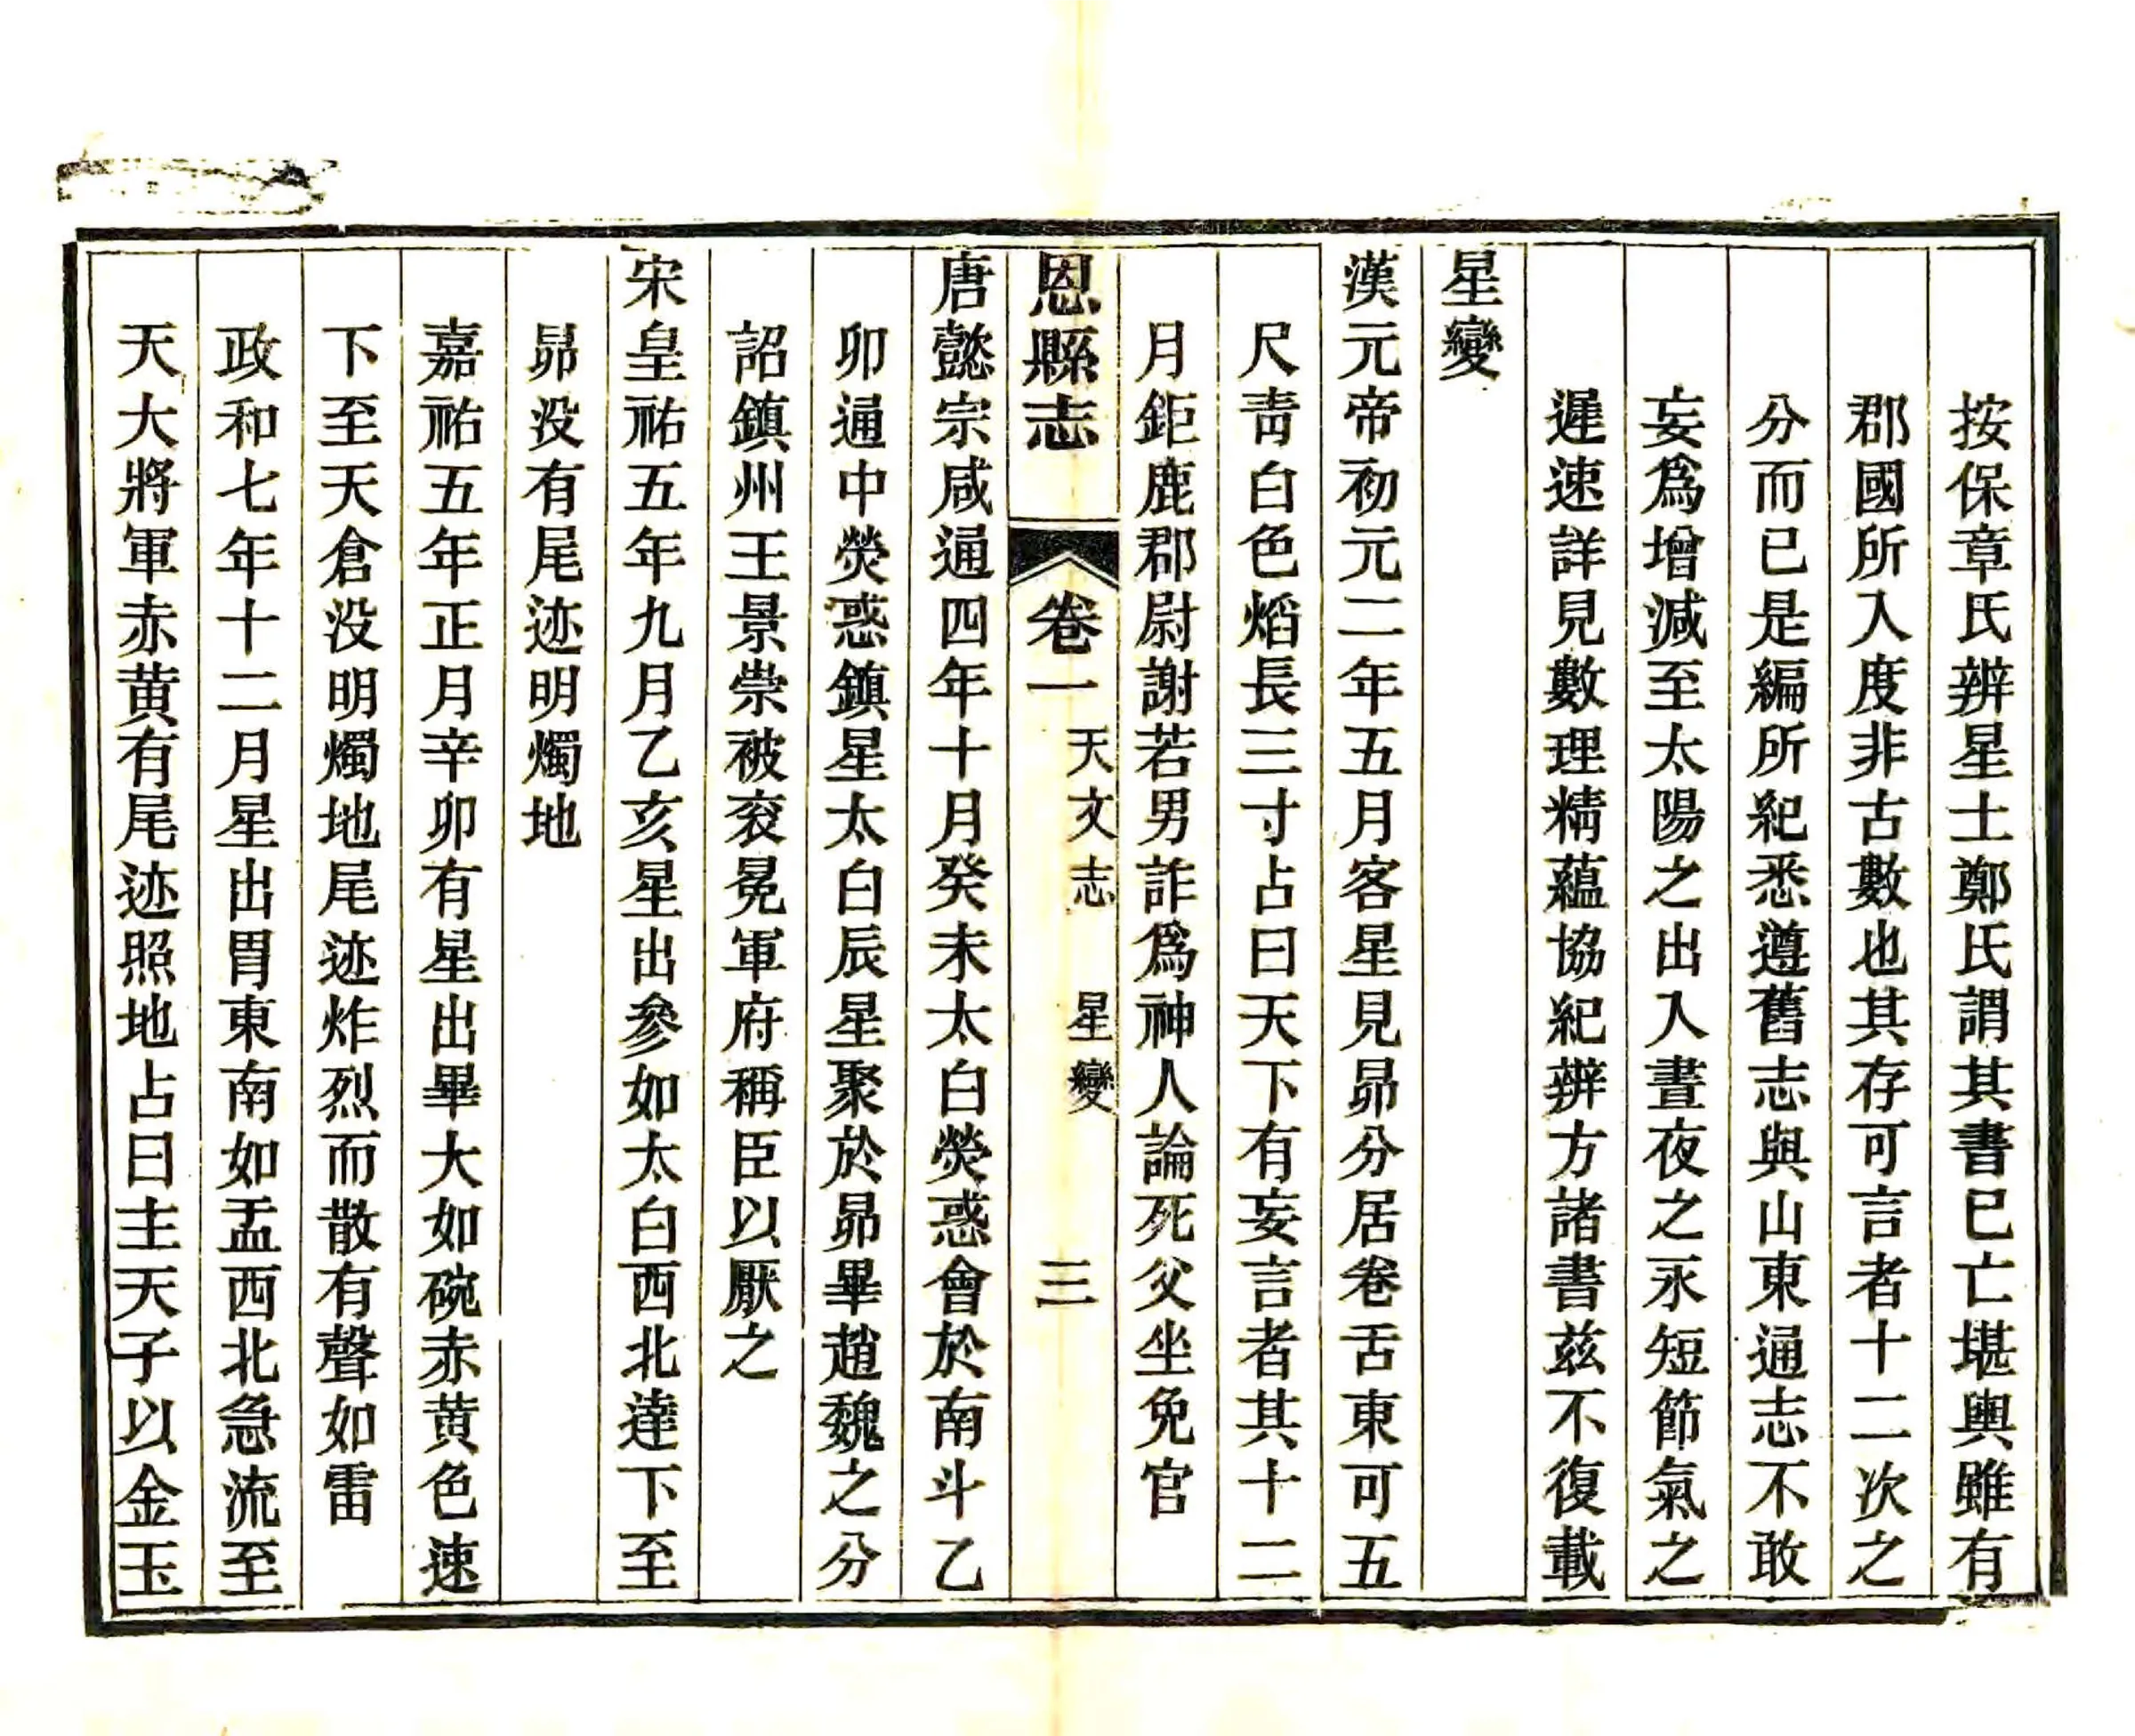 按保章氏辨星土鄭氏謂其書已亡堪輿雖有
郡國所入度非古數也其存可言者十二次之
分而已是編所紀悉遵舊志與山東通志不敢
妄爲增減至太陽之出入晝夜之永短節氣之
遲速詳見數理精蘊協紀辨方諸書茲不復載
星變
漢元帝初元二年五月客星見昴分居卷舌東可五
尺靑白色熖長三寸占曰天下有妄言者其十二
月鉅鹿郡尉謝若男詐爲神人論死父坐免官
恩縣志 卷一 天文志 星變 三
唐懿宗咸通四年十月癸未太白熒惑會於南斗乙
卯通中熒惑鎮星太白辰星聚於昴畢趙魏之分
詔鎮州王景崇被衮冕軍府稱臣以厭之
宋皇祐五年九月乙亥星出參如太白西北達下至
昴没有尾迹明燭地
嘉祐五年正月辛卯有星出畢大如碗赤黄色速
下至天倉没明燭地尾迹炸烈而散有聲如雷
政和七年十二月星出胃東南如盂西北急流至
天大將軍赤黄有尾迹照地占曰主天子以金玉